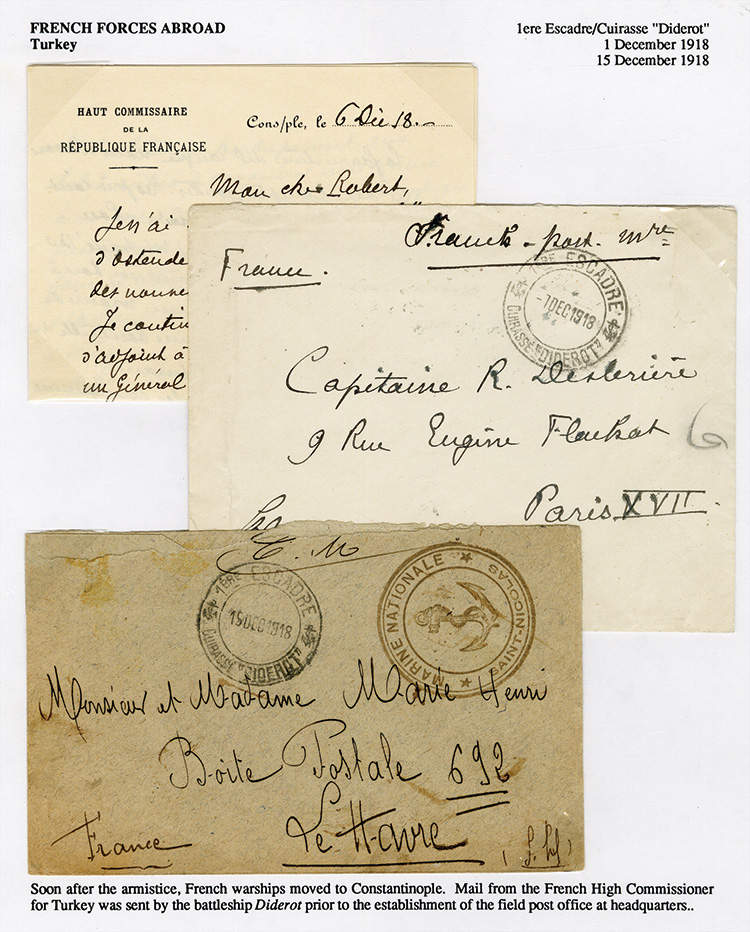 FRENCH FORCES ABROAD
Turkey
1ere Escadre/Cuirasse "Diderot"
1 December 1918
15 December 1918
HAUT COMMISSAIRE
DE LA
RÉPUBLIQUE FRANÇAISE
Cons/ple, le 6 Déc 18.
Mon cher Robert,
Je n'ai
d'ostende
des nouve
Je contin
d'adjoint à
un Général
Franch - post. mre
France.
1ERE ESCADRE
-7DEC1918
CUIRASSE "DIDEROT"
Capitaine R.
9 Rue Eugène Flachat
Paris XVII
6
1ERE ESCADRE
15DEC1918
CUIRASSE "DIDEROT"
MARINE NATIONALE
SAINT-NICOLAS
Monsieur et Madame Marie Henri
Boite Postale 692
Le Havre
France
Soon after the armistice, French warships moved to Constantinople. Mail from the French High Commissioner
for Turkey was sent by the battleship Diderot prior to the establishment of the field post office at headquarters..